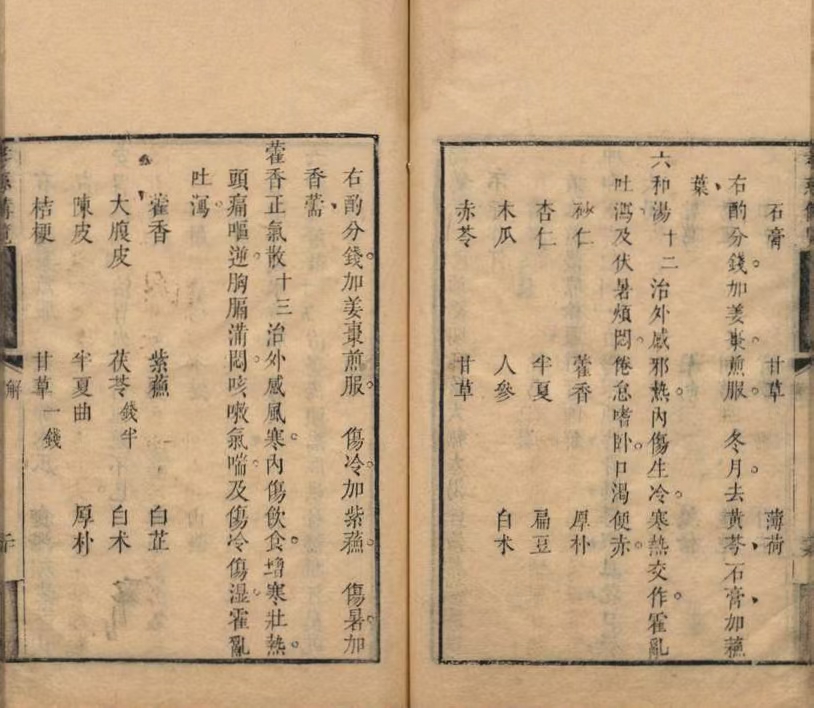 石膏 甘草 薄荷
右酌分錢加姜棗煎服。冬月去黃芩、石膏加蘇
葉、
六和湯十二治外感邪熱。內傷生冷。寒熱交作。霍亂
吐瀉。及伏暑煩悶。倦怠嗜卧。口渴便赤。
砂仁 藿香 厚朴
杏仁 半夏 扁豆
木瓜 人參 白朮
赤苓 甘草
右酌分錢。加姜棗煎服。傷冷。加紫蘇。傷暑。加
香薷、
藿香正氣散十三治外感風寒。內傷飲食。增寒壯熱。
頭痛嘔逆。胸膈滿悶。咳嗽氣喘。及傷冷傷湿。霍亂
吐瀉。
藿香 紫蘇 白芷
大腹皮 茯苓錢半 白朮
陳皮 半夏曲 厚朴
桔梗 甘草一錢
解